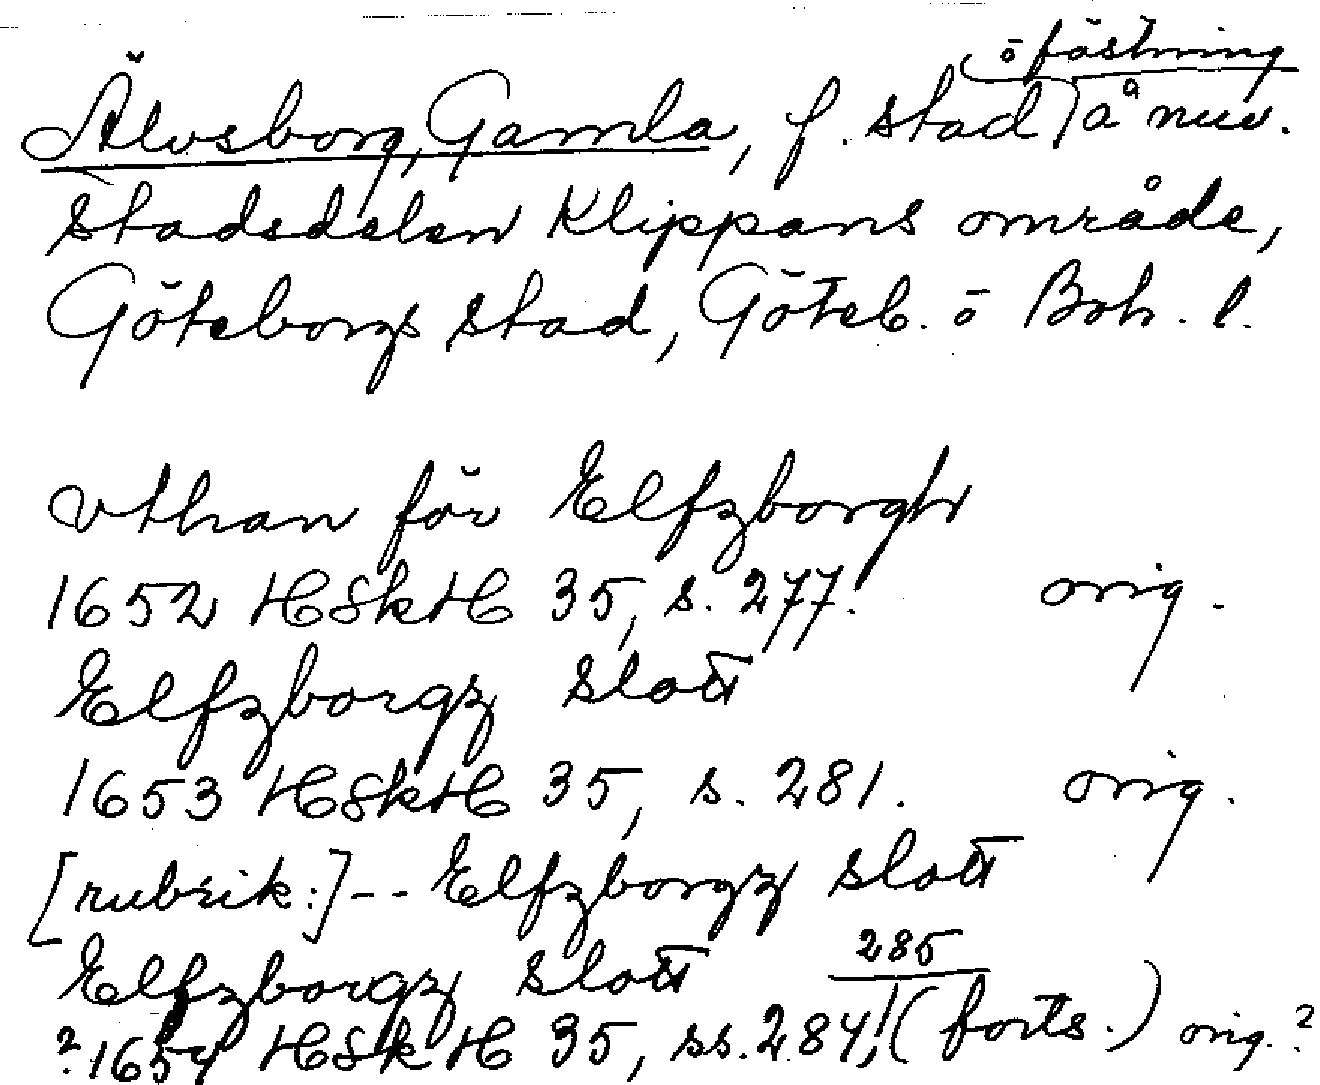 ö fästning
Älvsborg, Gamla, f. stad å nuv.
stadsdelen Klippans område,
Göteborgs stad, Göteb. ö Boh. l.
vthan för Elfzborgh
1652 HSkH 35, s. 277. orig.
Elfzborgz slott
1653 HSkH 35, s. 281. orig.
[rubrik:]-- Elfzborgz slott
Elfzborgz slott 285
?1654 HSkH 35, ss. 284, (forts.) orig.?